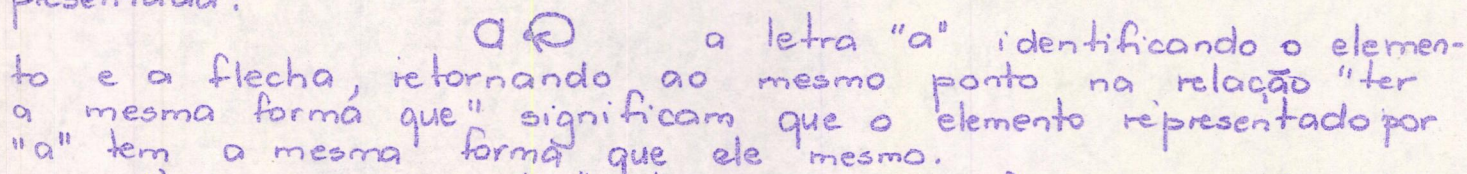 presentada.
a a letra "a" identificando o elemen-
to e a flecha, retornando ao mesmo ponto na relação "ter
a mesma forma que" significam que o elemento representado por
"a" tem a mesma forma que ele mesmo.